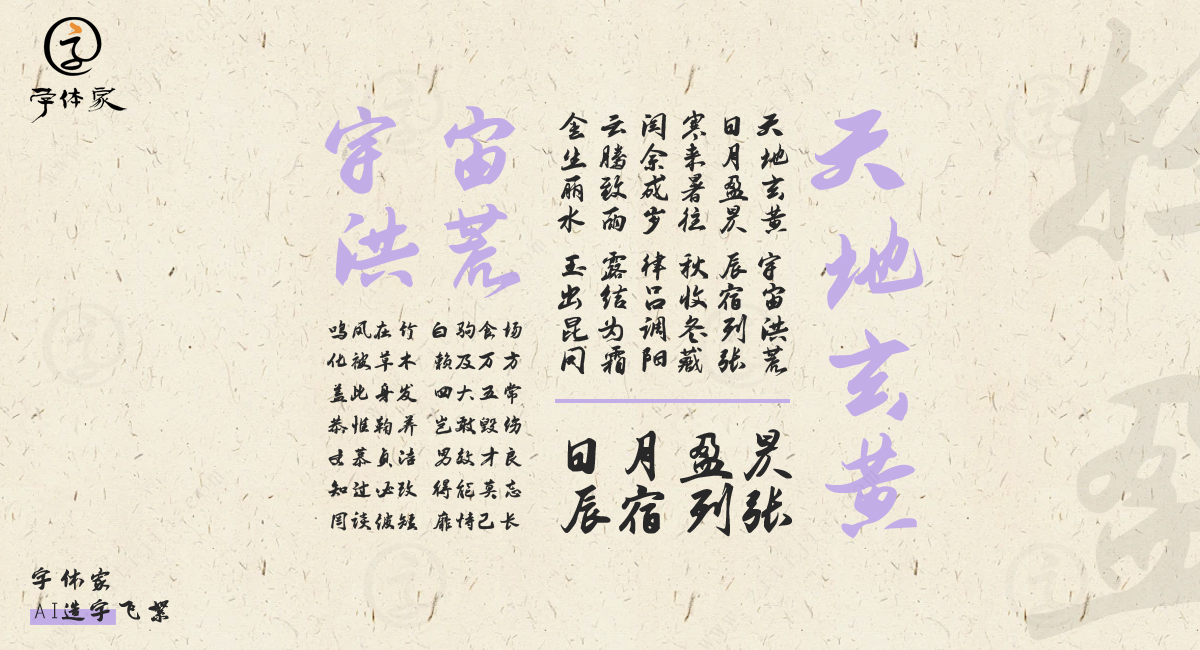 字
字体家
天地玄黄
宇宙
洪荒
天地玄黄 宇宙洪荒
日月盈昃 辰宿列张
寒来暑往 秋收冬藏
闰余成岁 律吕调阳
云腾致雨 露结为霜
金生丽水 玉出昆冈
鸣凤在竹 白驹食场
化被草木 赖及万方
盖此身发 四大五常
恭惟鞠养 岂敢毁伤
女慕贞洁 男效才良
知过必改 得能莫忘
罔谈彼短 靡恃己长
日月盈昃
辰宿列张
字体家
AI造字飞絮